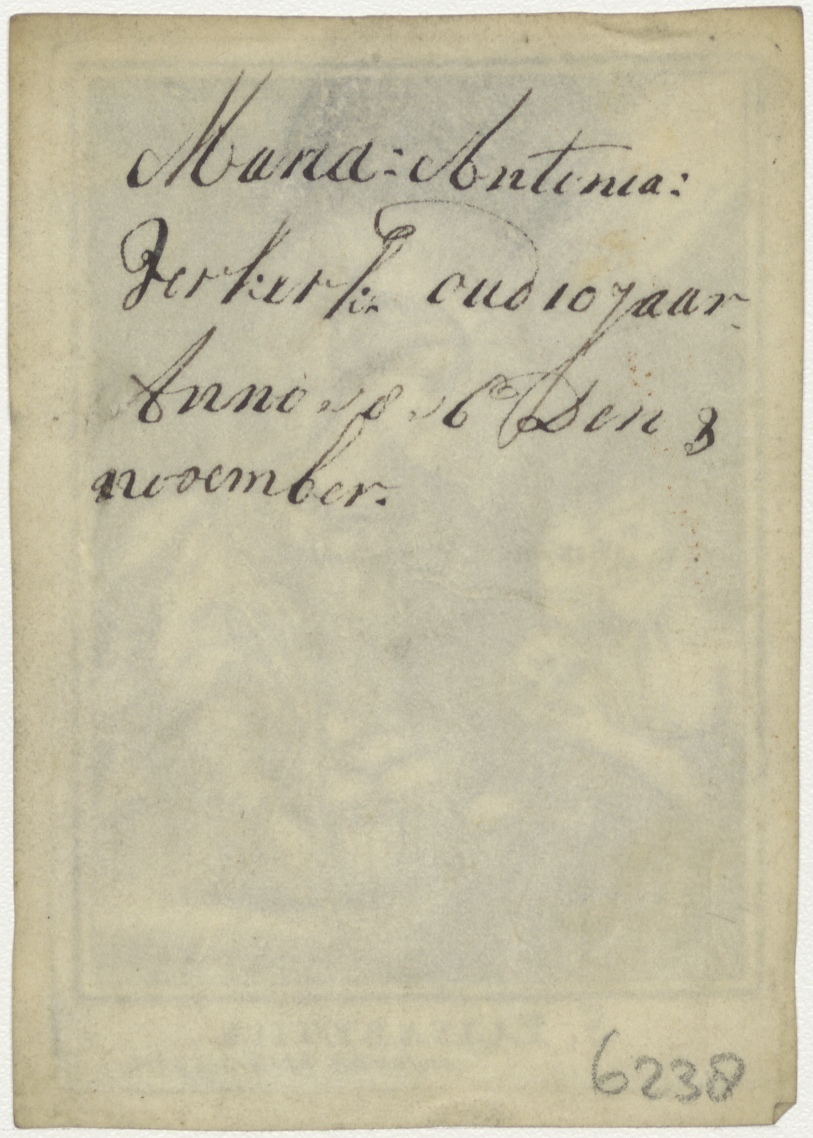 Maria: Antonia:
Verkerk: oud 10 jaar
Anno 1816 Den 3
november.
6238